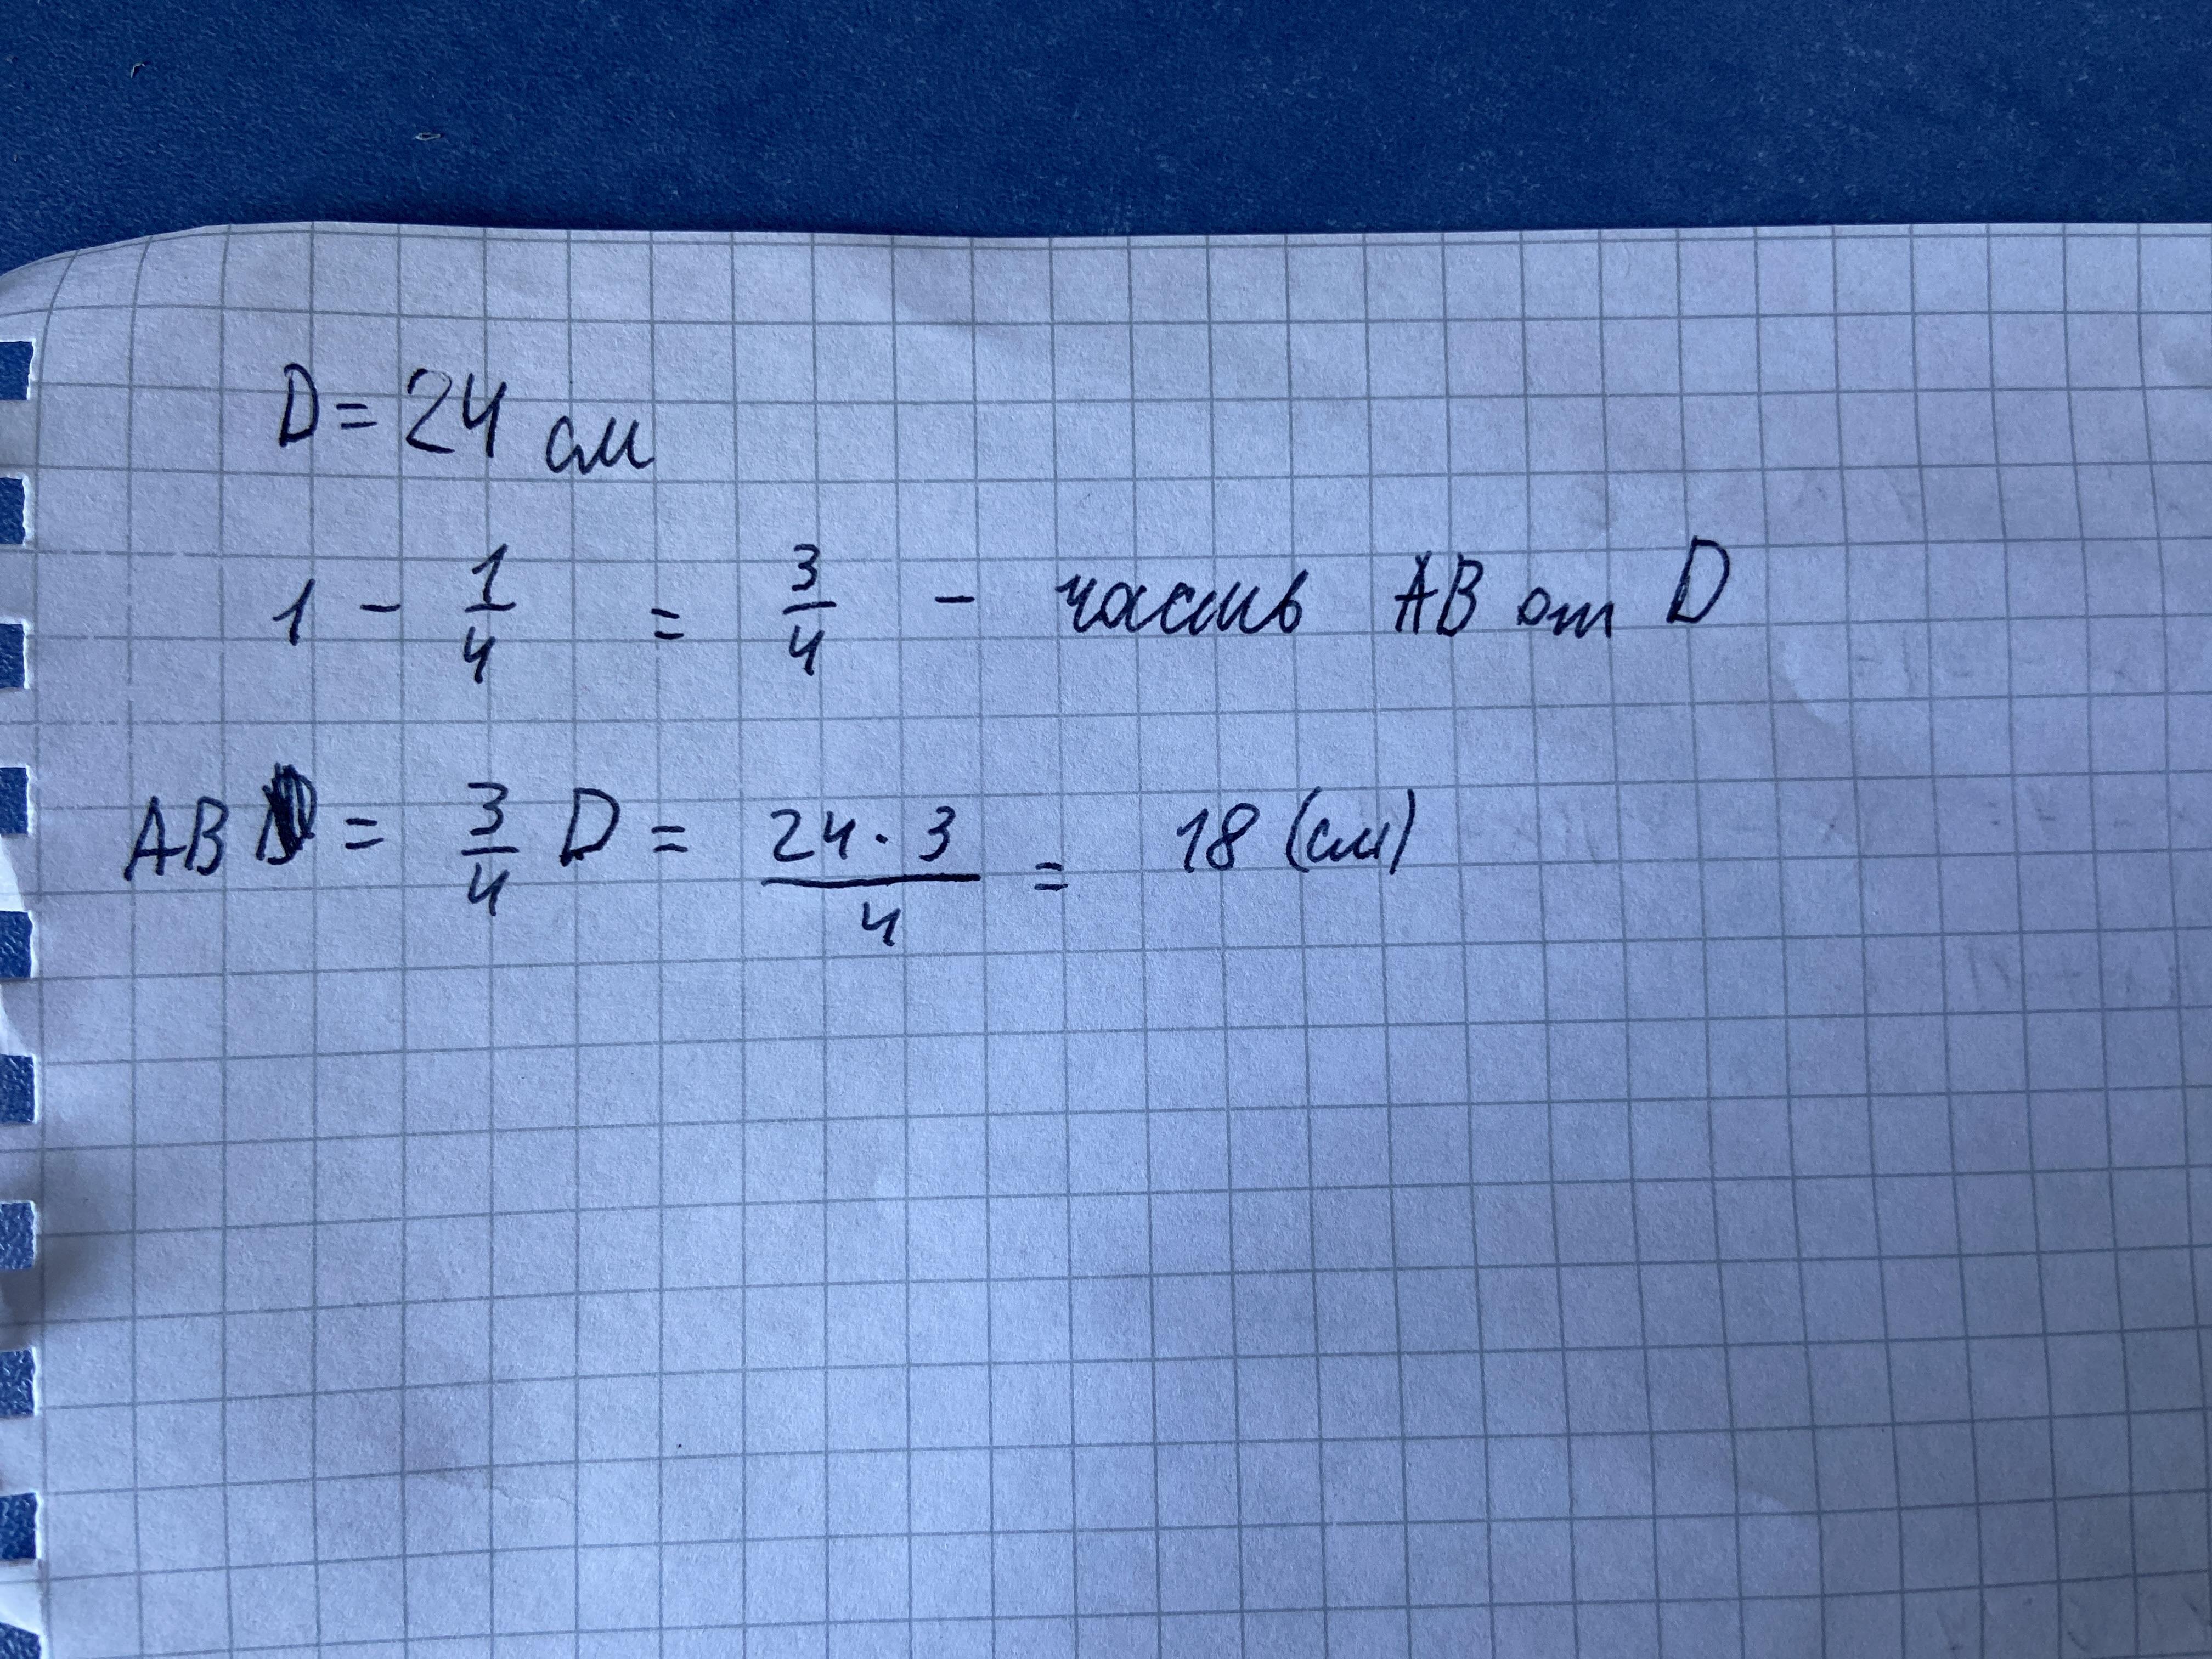 D = 24 см
1 - 1/4 = 3/4 - часть AB от D
AB = 3/4 D = 24 · 3 / 4 = 18 (см)